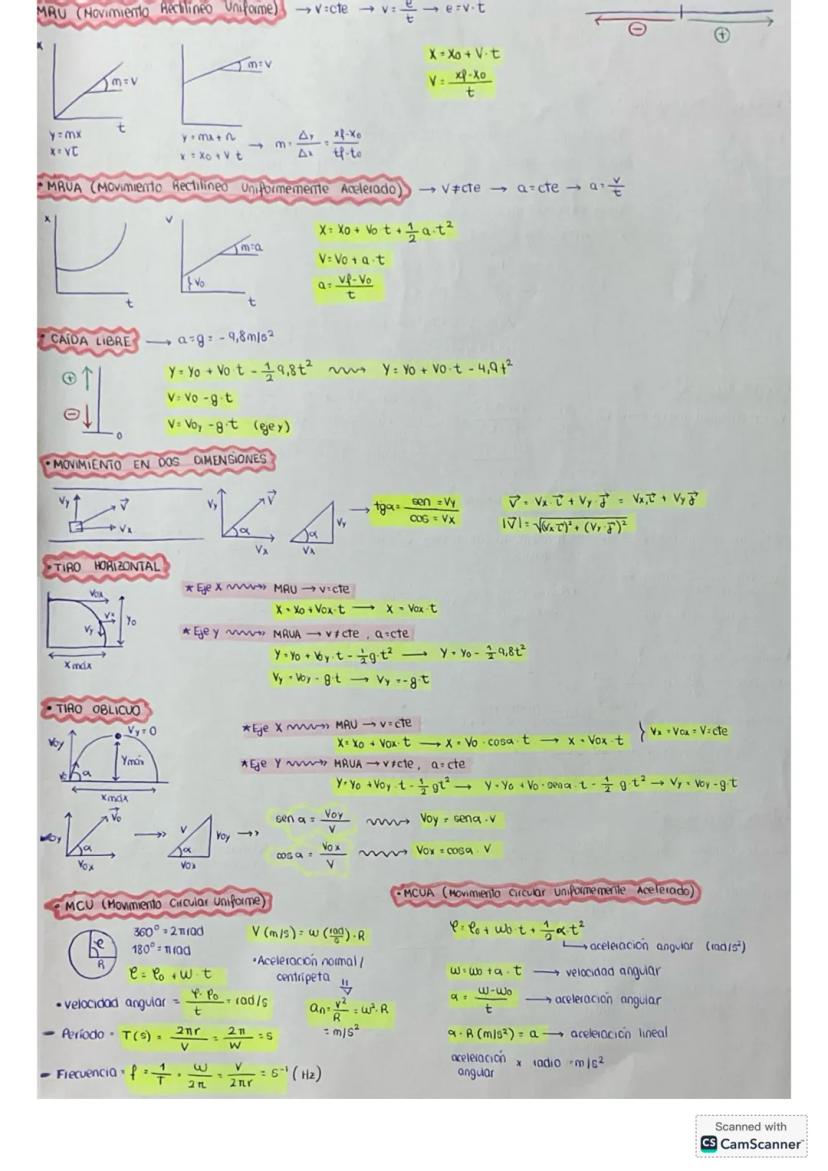 MRU (Movimiento Rectilíneo Uniforme) → v=cte → v=e/t → e=v·t
⊖ ⊕
x m=v m=v
t
y=mx
x=vt
y=mx+n
x=x0+v t → m=Δy/Δx=xf-x0/tf-t0
x=x0+v·t
v=xf-x0/t
• MRUA (Movimiento Rectilíneo Uniformemente Acelerado) → v≠cte → a=cte → a=v/t
x t v m=a v0 t
x=x0+v0 t+1/2 a·t²
v=v0+a·t
a=vf-v0/t
• CAÍDA LIBRE → a=g=-9,8m/s²
⊕ ⊖ 0
y=y0+v0·t-1/2 9,8t² y=y0+v0·t-4,9t²
v=v0-g·t
v=v0y-g·t (eje y)
• MOVIMIENTO EN DOS DIMENSIONES
vy v⃗ vx vy v⃗ α vx α vy vx → tgα=sen=vy/cos=vx
v⃗=vx·i⃗+vy·j⃗=vx i⃗+vy j⃗
|v⃗|=√(vx i⃗)²+(vy·j⃗)²
• TIRO HORIZONTAL
vox vx vy y0 xmáx
* Eje x MRU → v=cte
x=x0+vox·t → x=vox·t
* Eje y MRUA → v≠cte, a=cte
y=y0+voy·t-1/2 g·t² → y=y0-1/2 9,8t²
vy=voy-g·t → vy=-g·t
• TIRO OBLICUO
voy vy=0 ymáx α xmáx
* Eje X MRU → v=cte
x=x0+vox·t → x=v0·cosα·t → x=vox·t } vx=vox=v=cte
* Eje Y MRUA → v≠cte, a=cte
y=y0+voy·t-1/2 gt² → y=y0+v0·senα·t-1/2 g·t² → vy=voy-g·t
voy v⃗0 α vox v α voy vox
sen α=voy/v voy=senα·v
cosα=vox/v vox=cosα·v
• MCU (Movimiento Circular Uniforme)
φ R
360°=2πrad
180°=πrad
φ=φ0+ω·t
v(m/s)=ω(rad/s)·R
• Aceleración normal/
centrípeta
an=v²/R=ω²·R
=m/s²
• velocidad angular=φ-φ0/t=rad/s
- Período=T(s)=2πr/v=2π/ω=s
- Frecuencia=f=1/T=ω/2π=v/2πr=s⁻¹(Hz)
• MCUA (Movimiento Circular Uniformemente Acelerado)
φ=φ0+ω0·t+1/2 α·t²
aceleración angular (rad/s²)
ω=ω0+α·t → velocidad angular
α=ω-ω0/t → aceleración angular
α·R(m/s²)=a → aceleración lineal
aceleración angular x radio=m/s²
Scanned with
CS CamScanner